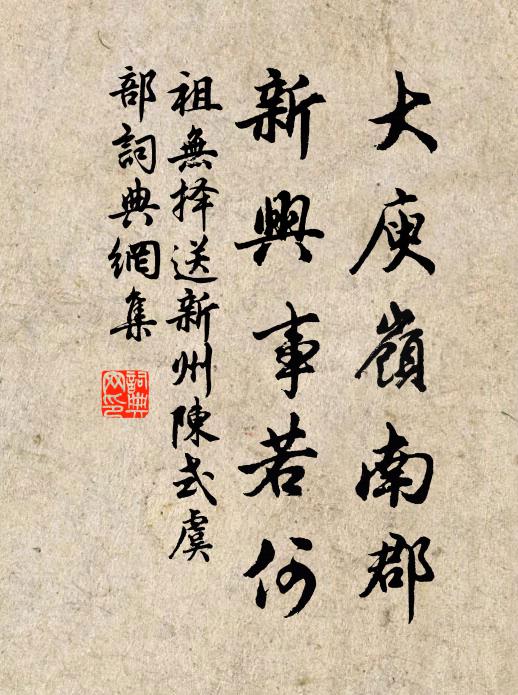 大庾嶺南郡
新興事若何
祖無择送新州陳式虞
部詞典網集
詞典
网印